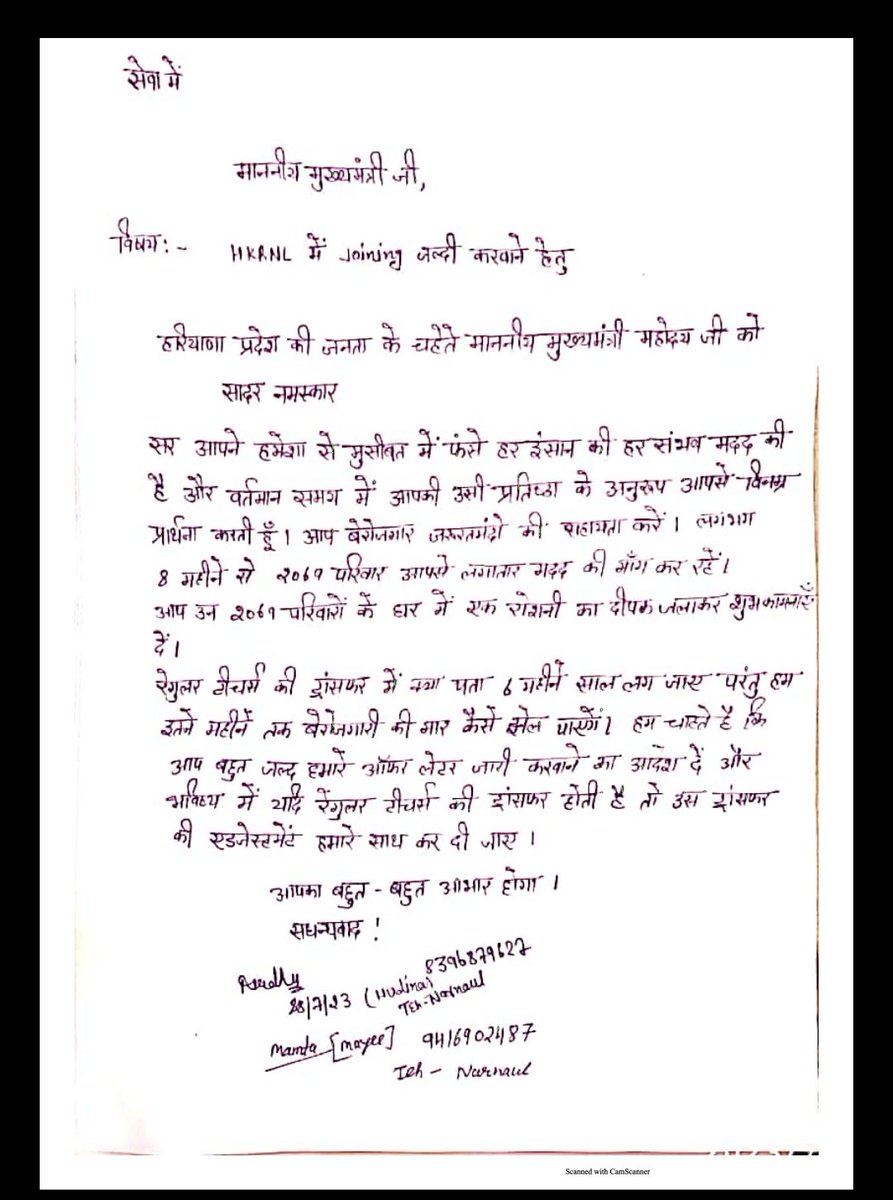 सेवा में
माननीय मुख्यमंत्री जी,
विषय :- HKRNL में Joining जल्दी करवाने हेतु
हरियाणा प्रदेश की जनता के चहेते माननीय मुख्यमंत्री महोदय जी को
सादर नमस्कार
सर आपने हमेशा से मुसीबत में फंसे हर इंसान की हर संभव मदद की
है और वर्तमान समय में आपकी उसी प्रतिष्ठा के अनुरूप आपसे विनम्र
प्रार्थना करती हूँ। आप बेरोजगार जरूरतमंदो की सहायता करें। लगभग
8 महीने से 2069 परिवार आपसे लगातार मदद की माँग कर रहें।
आप उन 2069 परिवारों के घर में एक रोशनी का दीपक जलाकर शुभकामनाएँ
दें।
रेगुलर टीचर्स की ट्रांसफर में क्या पता 6 महीने साल लग जाए परंतु हम
इतने महीनें तक बेरोजगारी की मार कैसे झेल पाएगें। हम चाहते है कि
आप बहुत जल्द हमारे ऑफर लेटर जारी करवाने का आदेश दें और
भविष्य में यदि रेंगुलर टीचर्स की ट्रांसफर होती है तो उस ट्रांसफर
की एडजेस्टमेंट हमारे साथ कर दी जाए।
आपका बहुत - बहुत आभार होगा।
सधन्यवाद !
8396879627
28/7/23 (Hudina)
Teh-Narnaul
Mamta [Mayee] 9416902487
Teh - Narnaul
Scanned with CamScanner